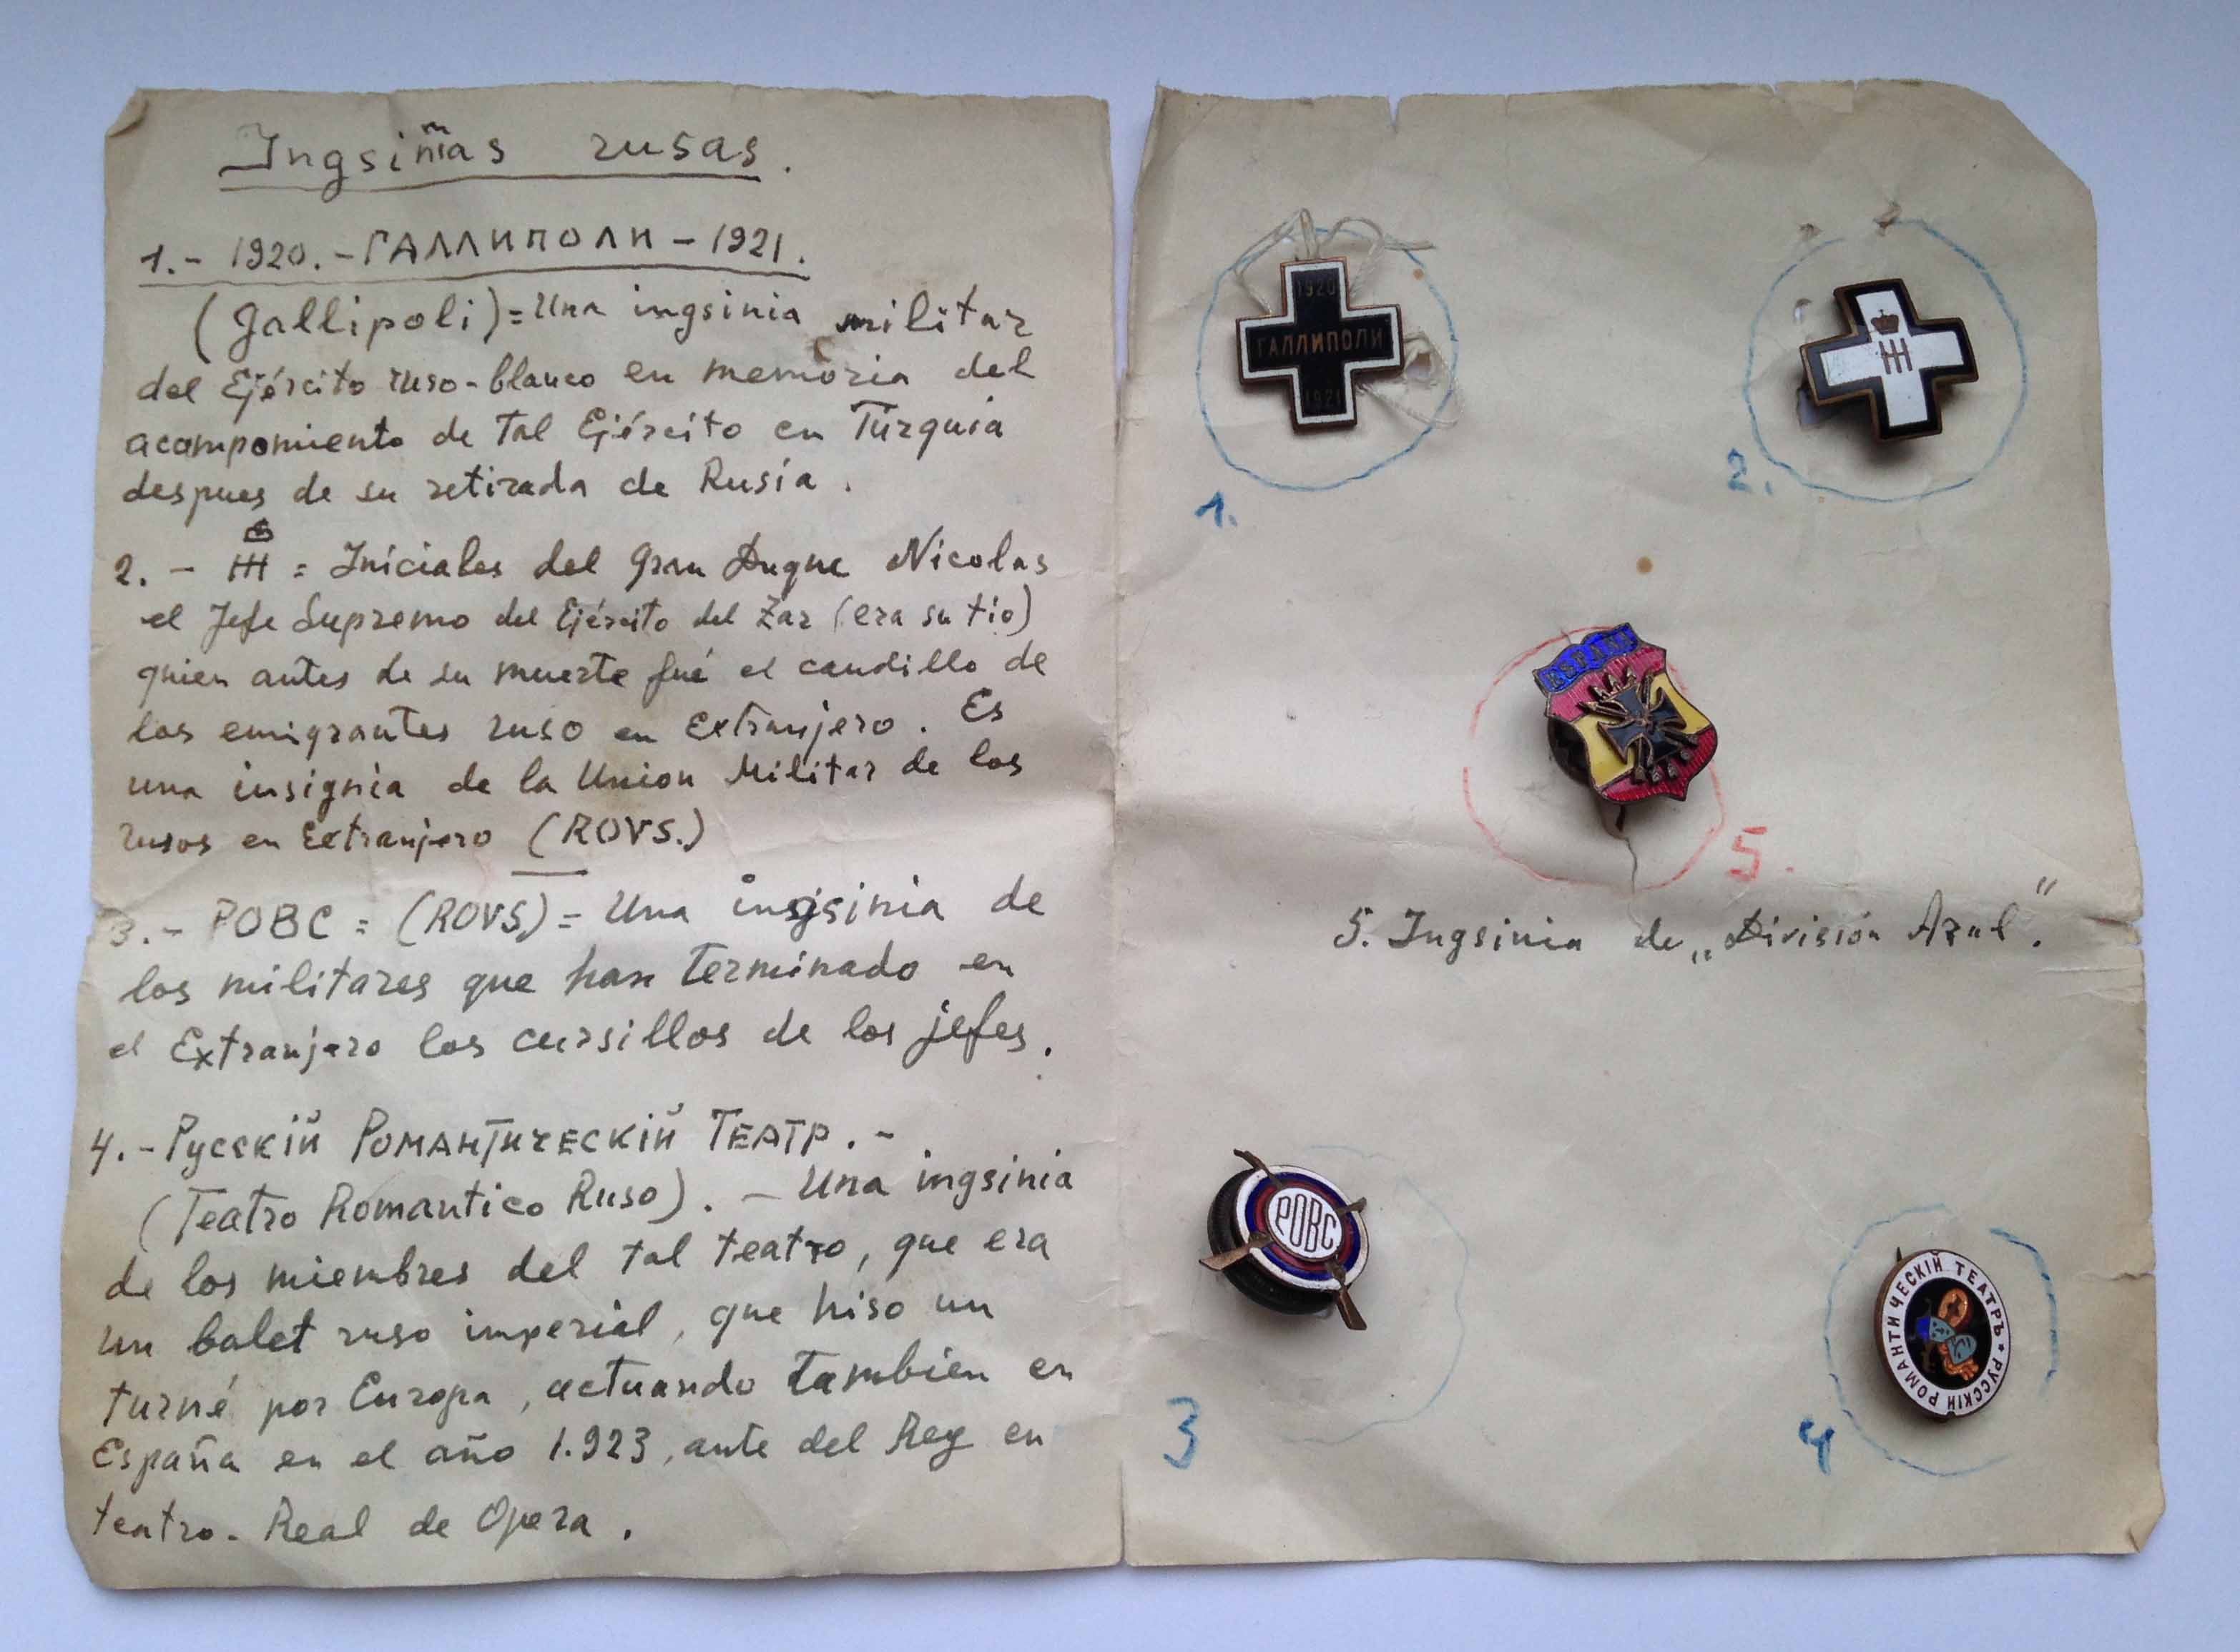 Ingsinias rusas.
1.- 1920.-ГАЛЛИПОЛИ-1921.
(Gallipoli)=Una ingsinia militar
del Ejército ruso-blanco en memoria del
acampomiento de tal Ejército en Turquia
despues de su retirada de Rusia.
2. - = Iniciales del Gran Duque Nicolas
el Jefe Supremo del Ejército del Zar (era su tio)
quien antes de su muerte fué el caudillo de
los emigrantes ruso en Extranjero. Es
una insignia de la Union Militar de los
rusos en Extranjero (ROVS.)
3.- РОВС = (ROVS)= Una ingsinia de
los militares que han terminado en
el Extranjero los cursillos de los jefes.
4.-Русскій Романтическій Театр.-
(Teatro Romantico Ruso). - Una ingsinia
de los miembres del tal teatro, que era
un balet ruso imperial, que hiso un
turné por Europa, actuando tambien en
España en el año 1.923, ante del Rey en
teatro. Real de Opera.
1920
ГАЛЛИПОЛИ
1921
1.
НН
2.
ESPAÑA
5.
5. Ingsinia de „División Azul."
РОВС
3
РУССКІЙ РОМАНТИЧЕСКІЙ ТЕАТРЪ
4